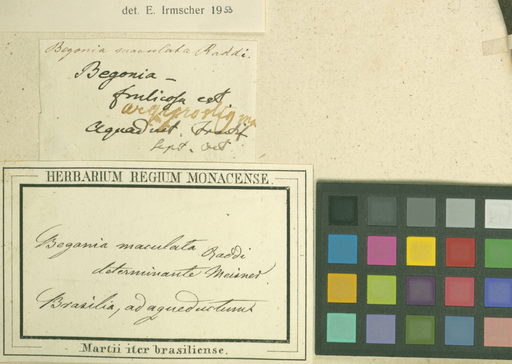 det. E. Irmscher 1953
Begonia maculata Raddi.
Begonia –
fruticosa
Aquaeduct.
Sept. Oct
HERBARIUM REGIUM MONACENSE.
Begonia maculata Raddi
determinante Meisner.
Brasilia, ad aquaeductum
Martii iter brasiliense.